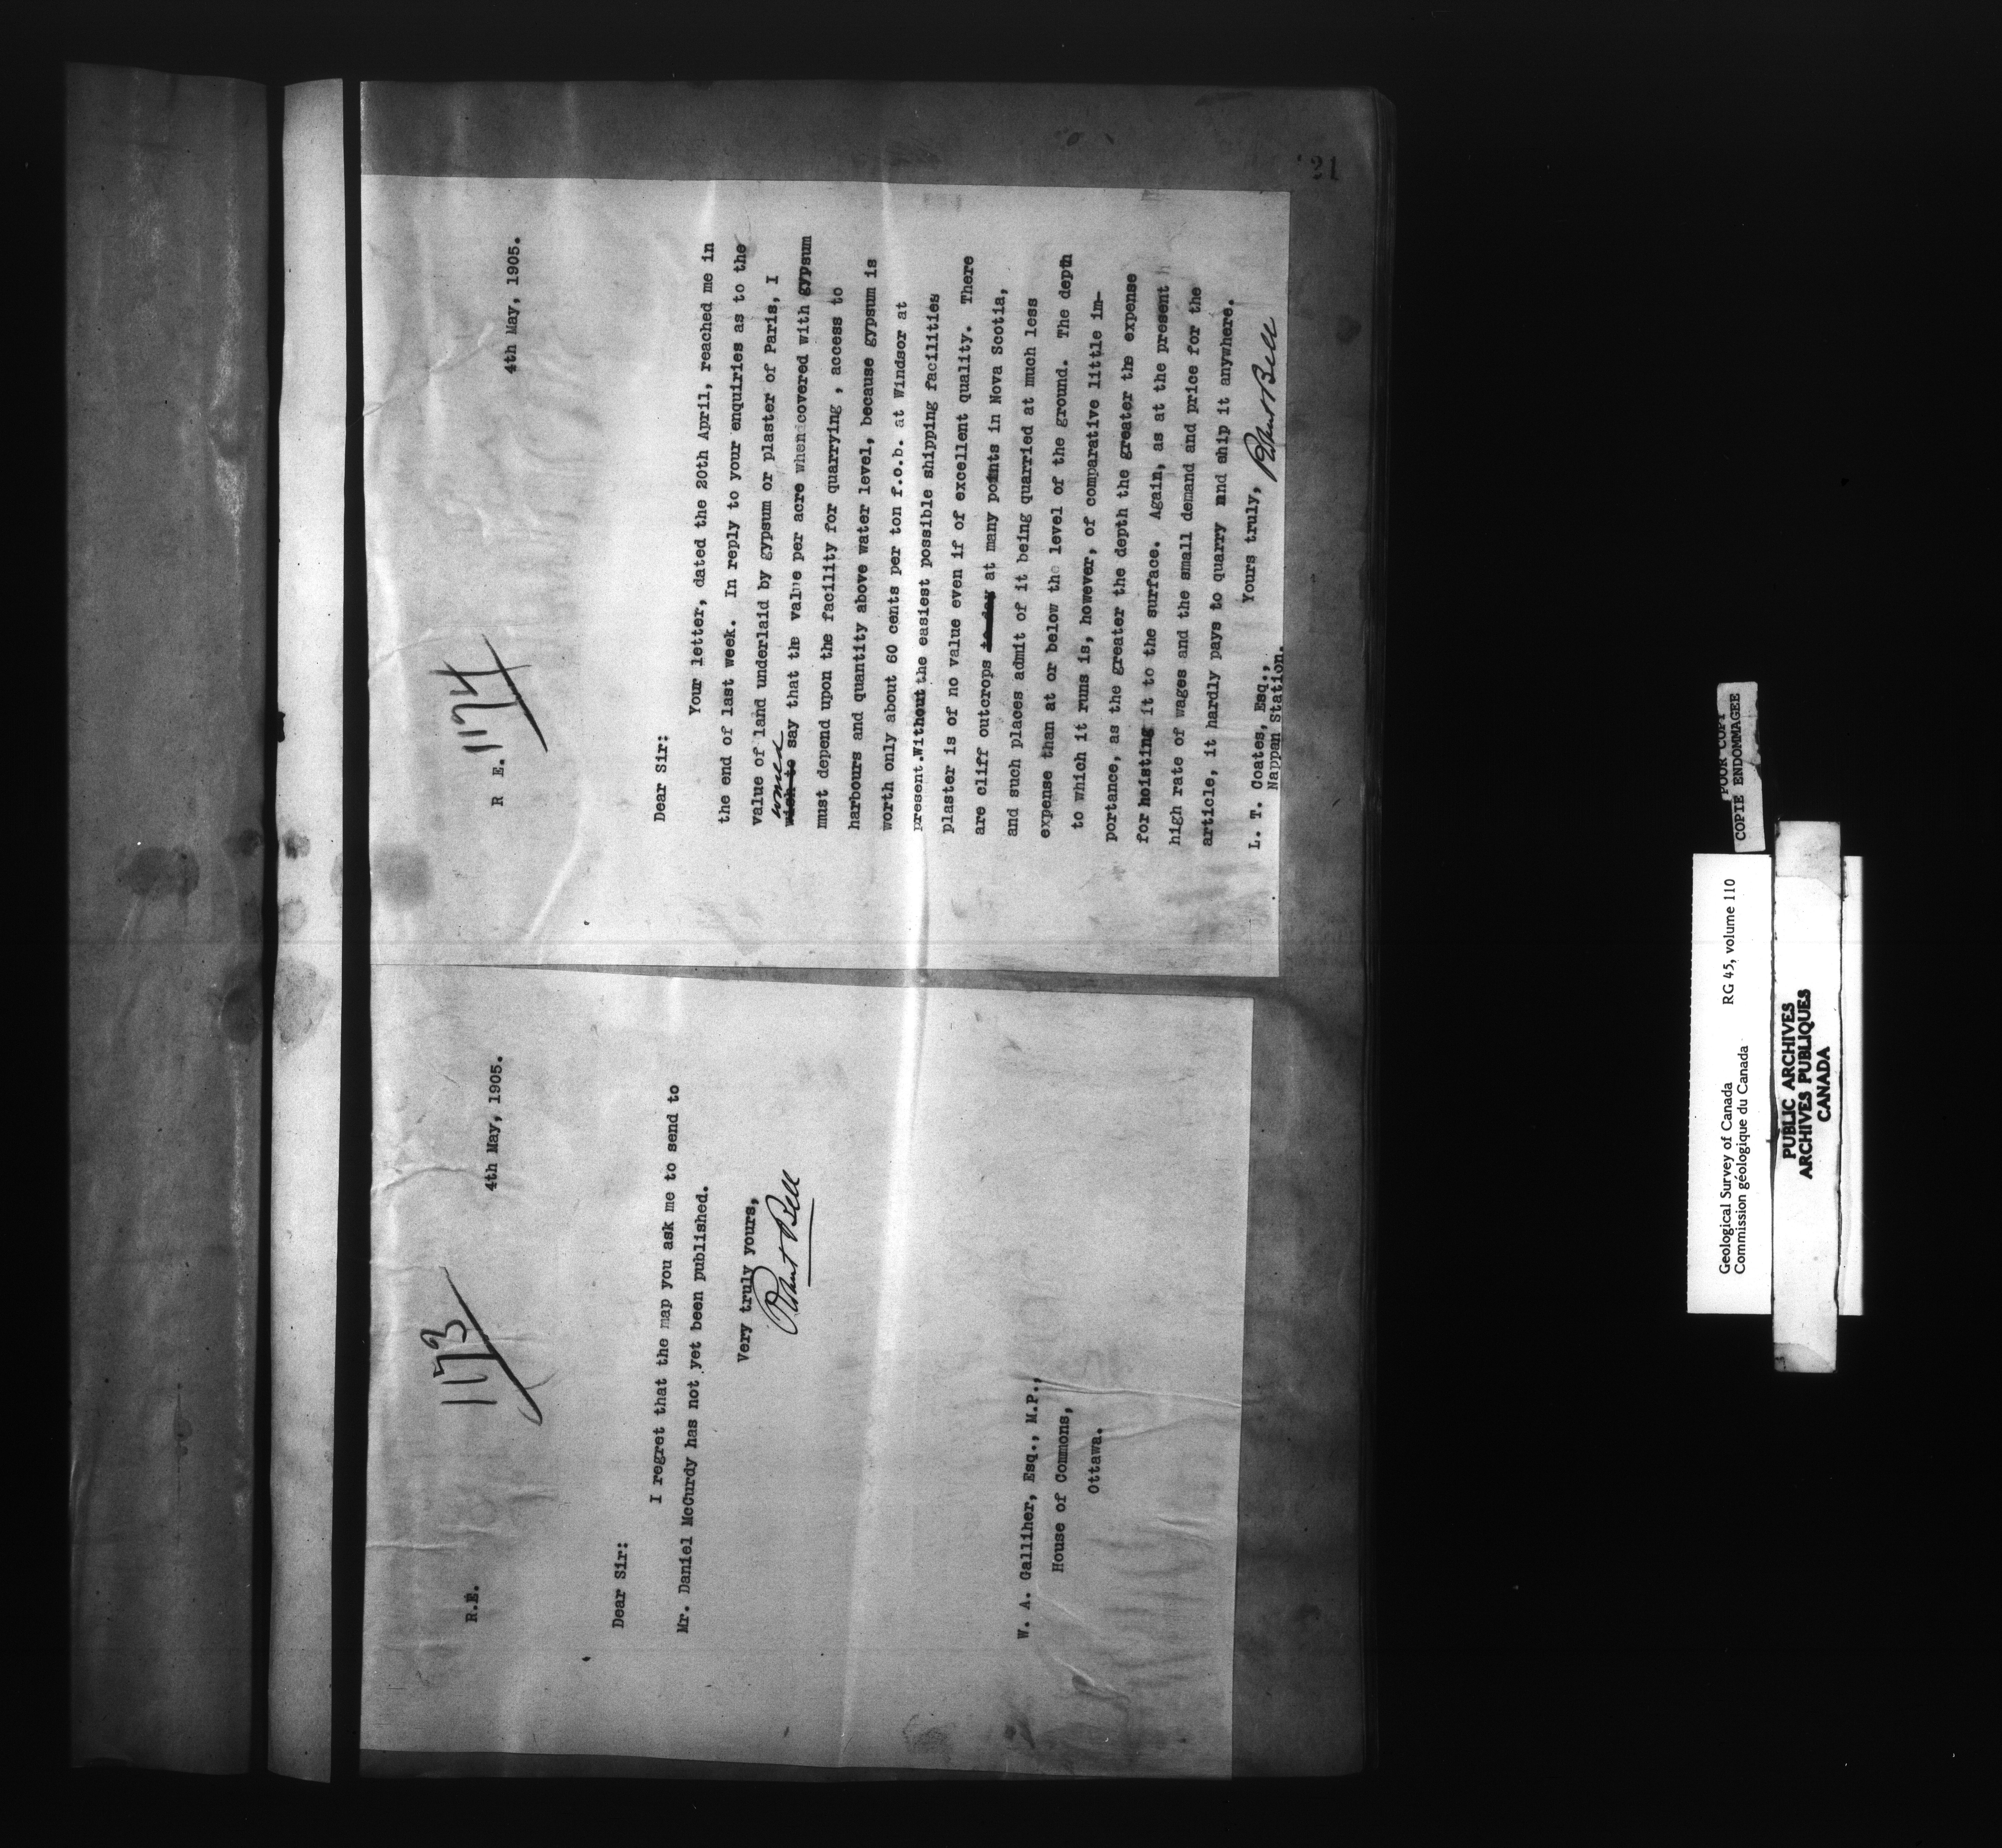 1173
R.E.
4th May, 1905.
Dear Sir:
I regret that the map you ask me to send to
Mr. Daniel McCurdy has not yet been published.
Very truly yours,
Robert Bell
W. A. Galliher, Esq., M.P.,
House of Commons,
Ottawa.
21
1174
R E.
4th May, 1905.
Dear Sir:
Your letter, dated the 20th April, reached me in
the end of last week. In reply to your enquiries as to the
value of land underlaid by gypsum or plaster of Paris, I
would
wish to say that the value per acre when covered with gypsum
must depend upon the facility for quarrying , access to
harbours and quantity above water level, because gypsum is
worth only about 60 cents per ton f.o.b. at Windsor at
present.Without the easiest possible shipping facilities
plaster is of no value even if of excellent quality. There
are cliff outcrops to-day at many points in Nova Scotia,
and such places admit of it being quarried at much less
expense than at or below the level of the ground. The depth
to which it runs is, however, of comparative little im-
portance, as the greater the depth the greater the expense
for hoisting it to the surface. Again, as at the present h
high rate of wages and the small demand and price for the
article, it hardly pays to quarry and ship it anywhere.
Yours truly, Robert Bell
L. T. Coates, Esq.,
Nappan Station.
POOR COPY
COPIE ENDOMMAGEE
Geological Survey of Canada RG 45, volume 110
Commission géologique du Canada
PUBLIC ARCHIVES
ARCHIVES PUBLIQUES
CANADA